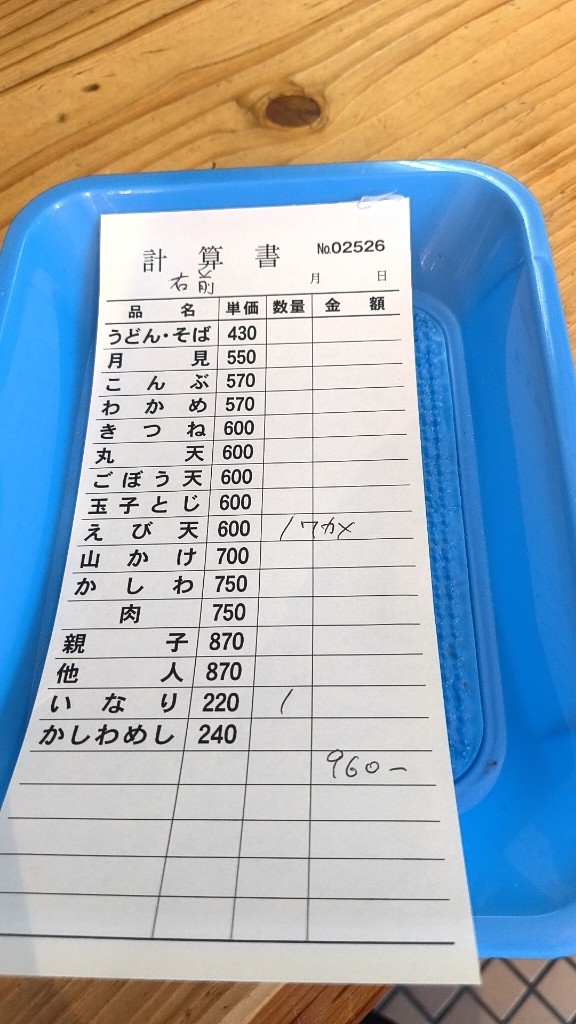 計算書 No.02526
右前 月 日
品名 単価 数量 金額
うどん・そば 430
月見 550
こんぶ 570
わかめ 570
きつね 600
丸天 600
ごぼう天 600
玉子とじ 600
えび天 600 / ワカメ
山かけ 700
かしわ 750
肉 750
親子 870
他人 870
いなり 220 /
かしわめし 240
960-